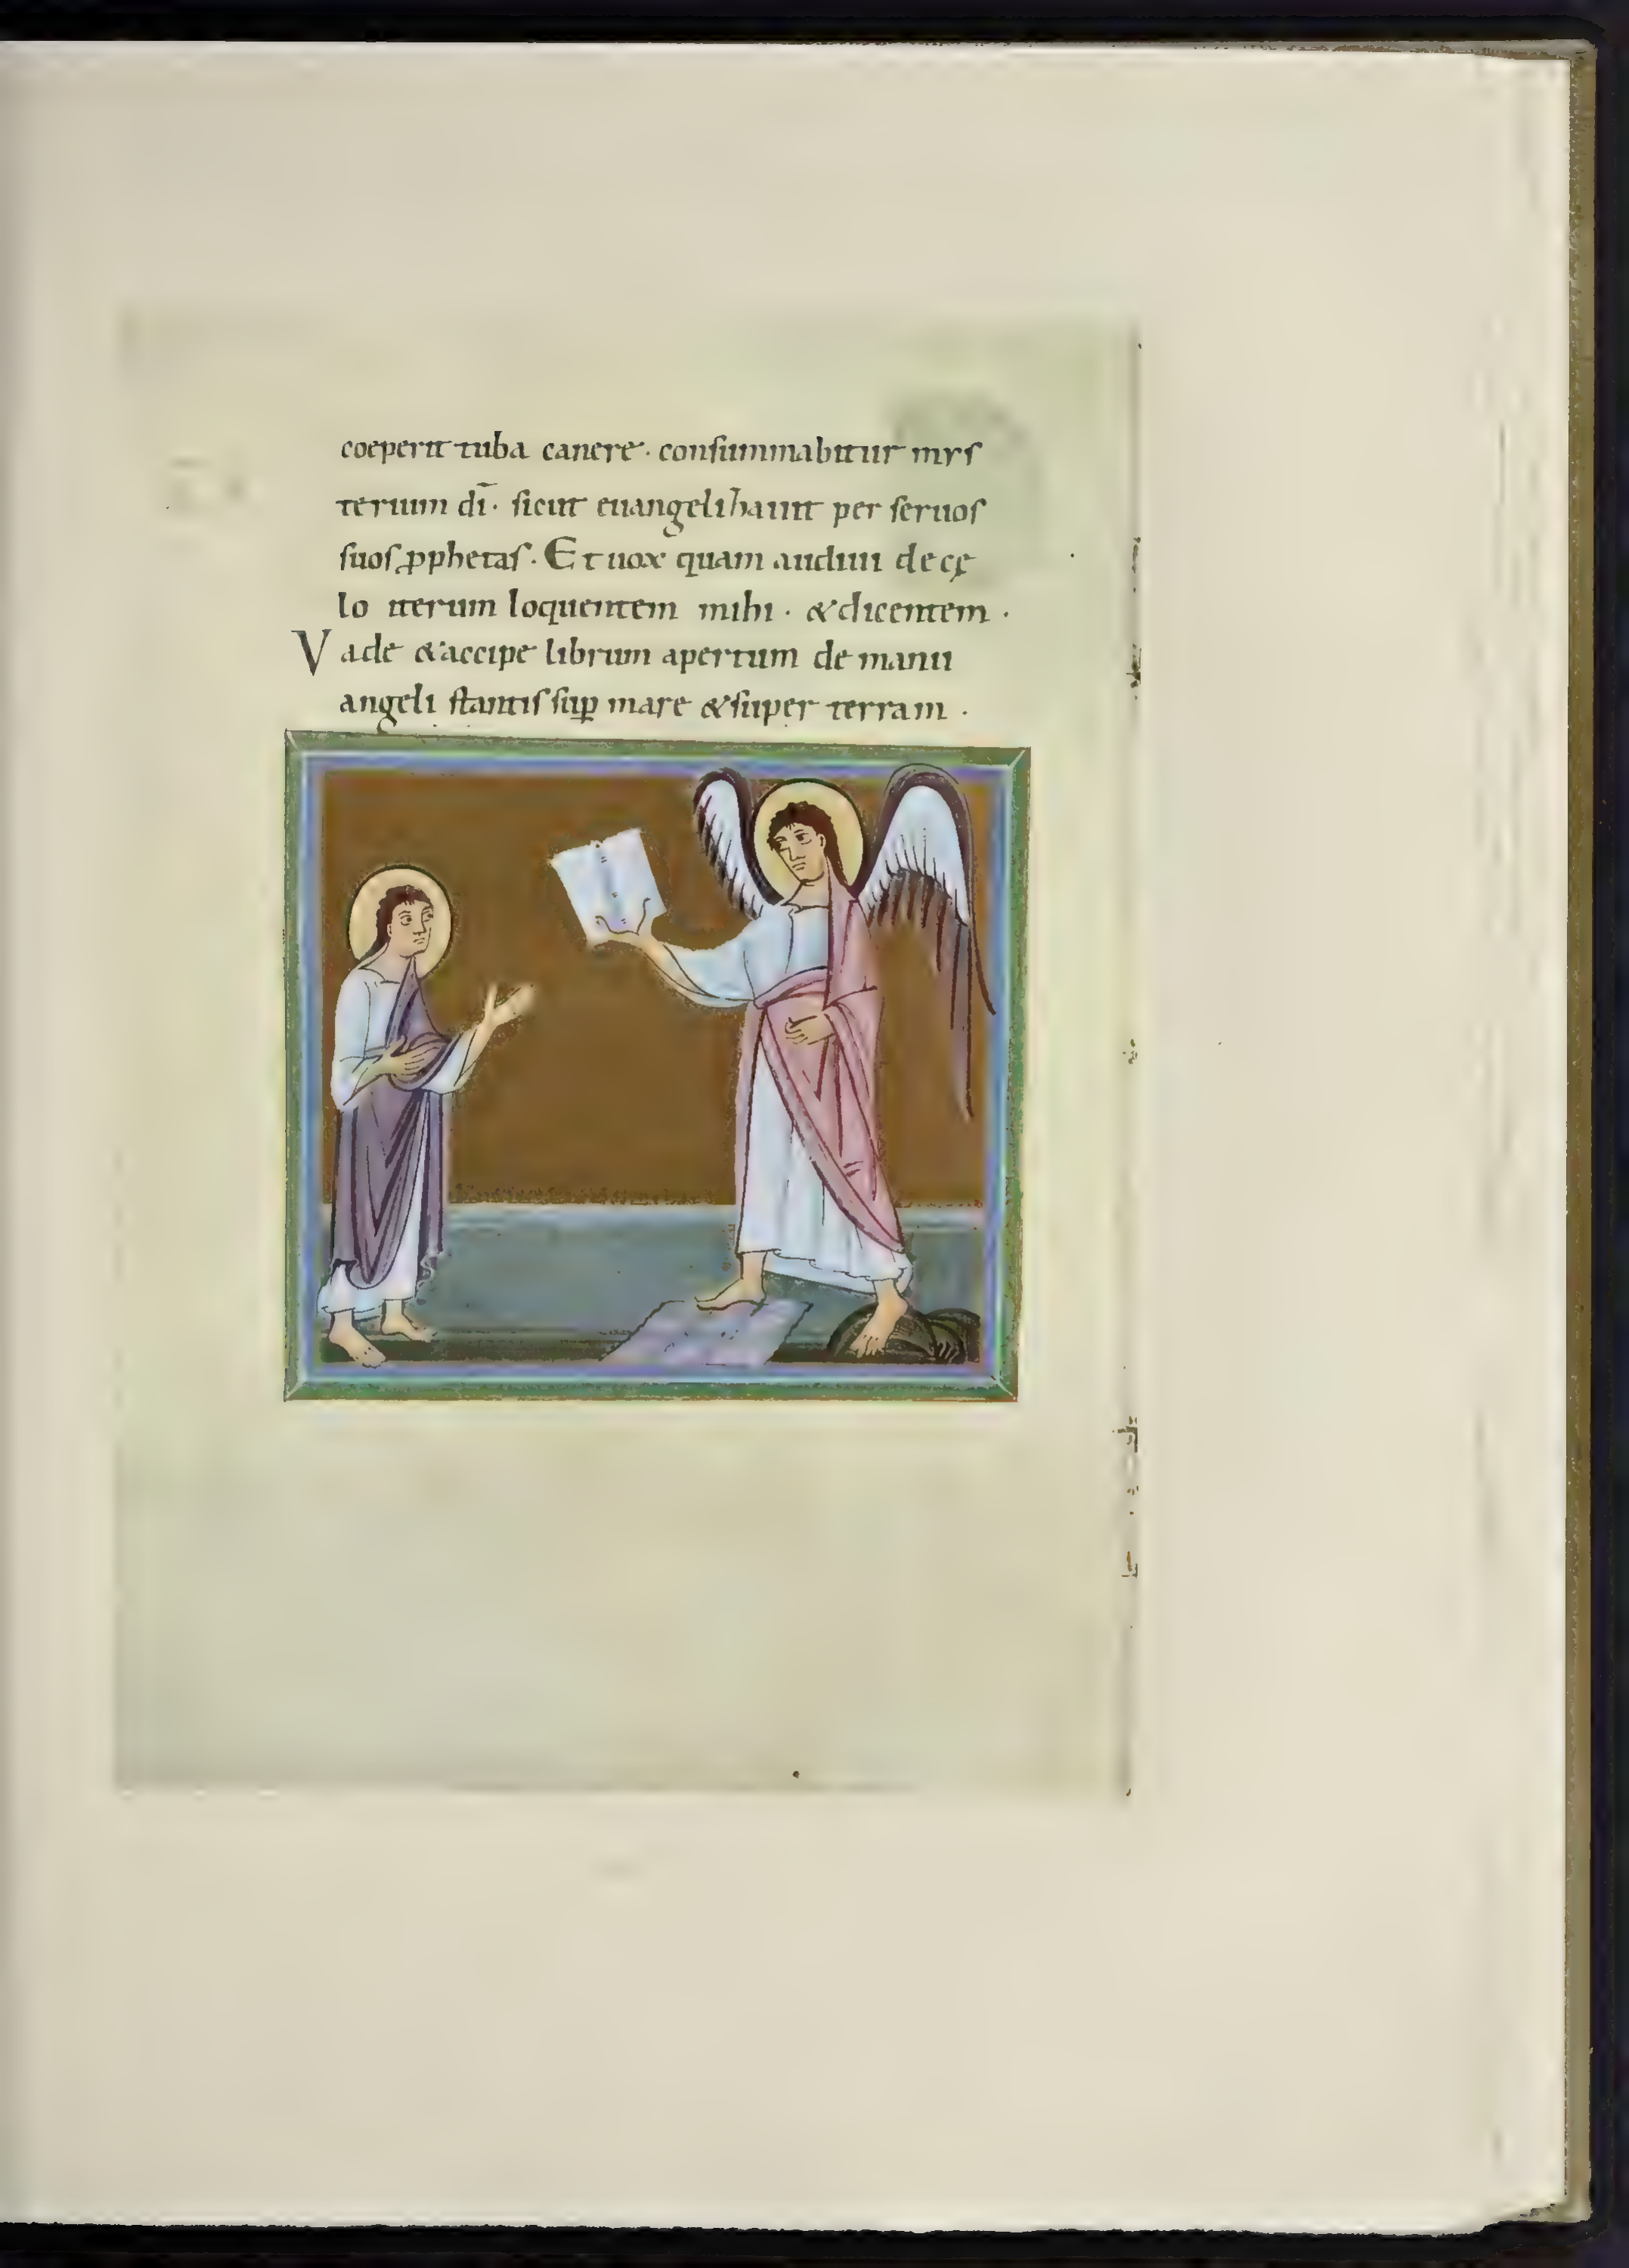 coeperit tuba canere · consummabitur mys
terium dī · sicut euangelizauit per seruos
suos ꝓphetas · Et uox quam audiui de cę
lo iterum loquentem mihi · & dicentem ·
Vade & accipe librum apertum de manu
angeli stantis suꝑ mare & super terram ·